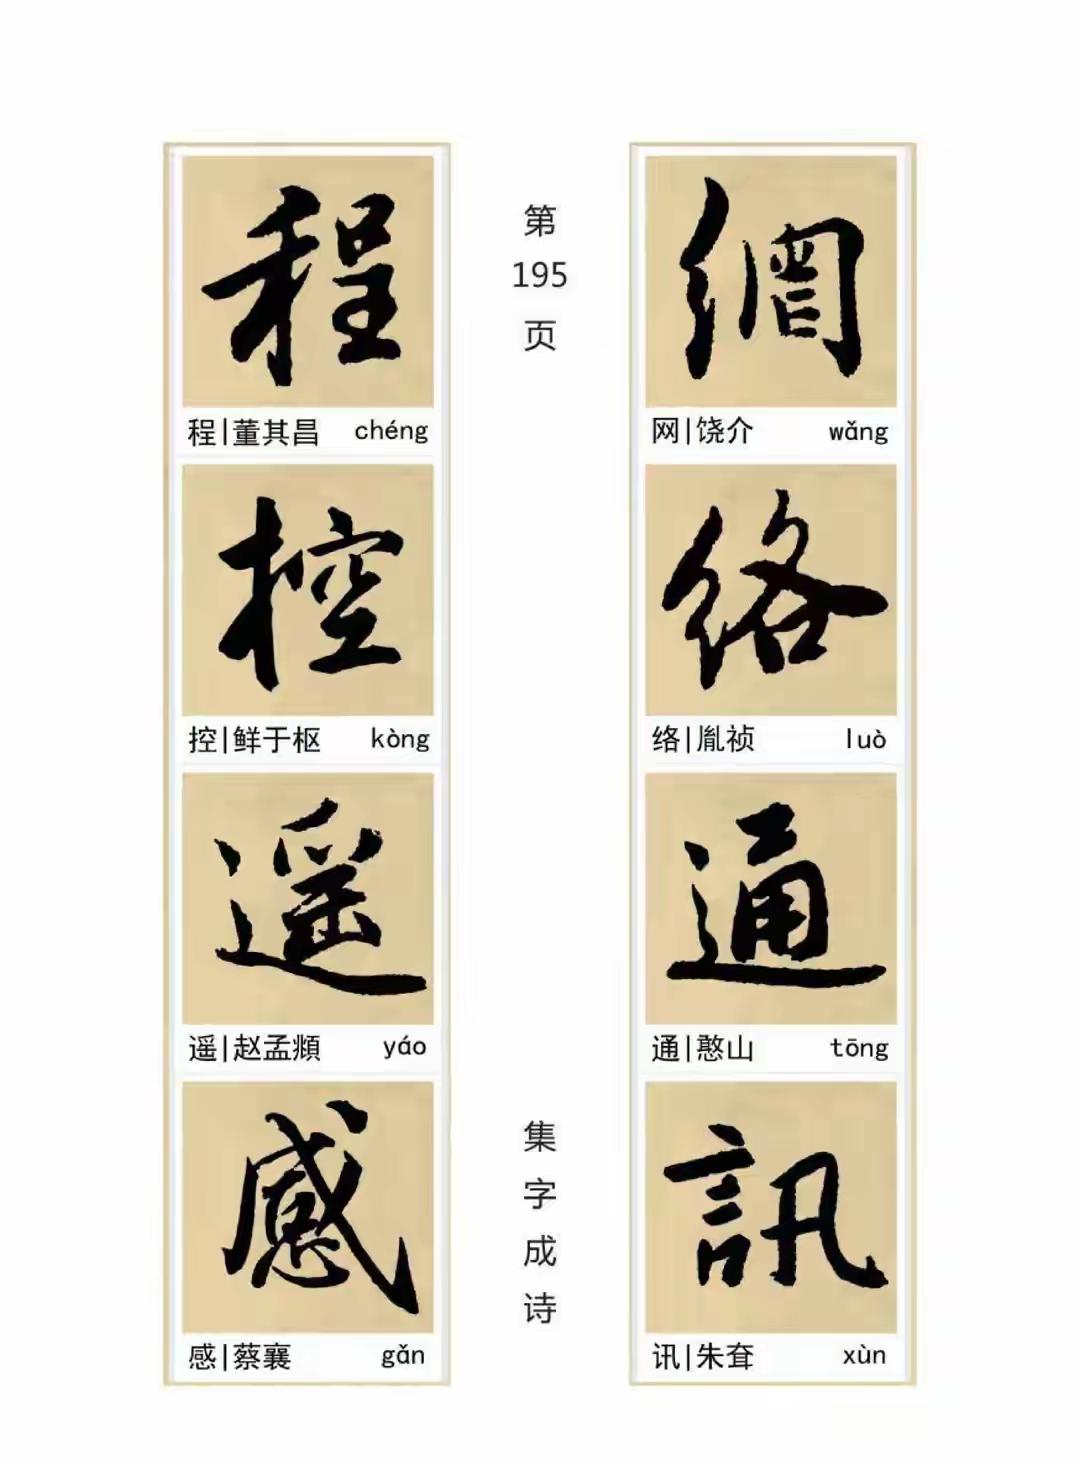 網
网|饶介 wǎng
絡
络|胤祯 luò
通
通|憨山 tōng
訊
讯|朱耷 xùn
第
195
页
集
字
成
诗
程
程|董其昌 chéng
控
控|鲜于枢 kòng
遥
遥|赵孟頫 yáo
感
感|蔡襄 gǎn